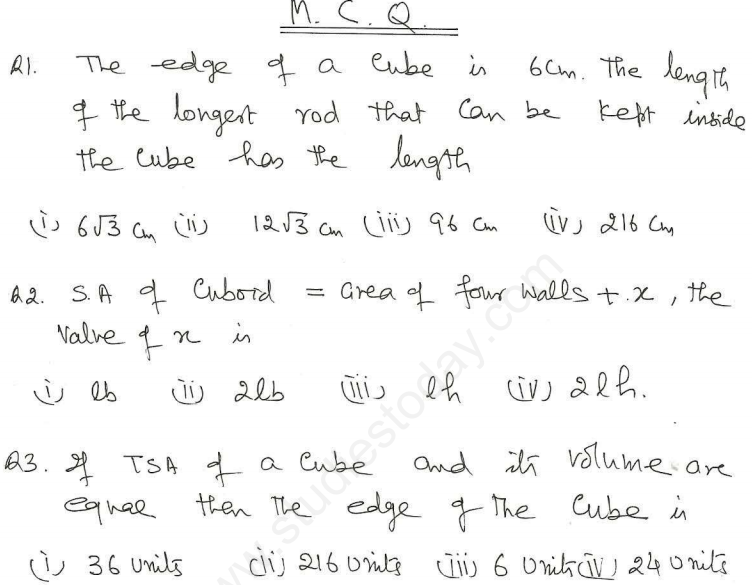 M. C. Q.
Q1. The edge of a Cube is 6cm. The length
of the longest rod that can be kept inside
the cube has the length
(i) 6√3 cm (ii) 12√3 cm (iii) 96 cm (iv) 216 cm
Q2. S.A of Cuboid = area of four walls + x, the
Value of x is
(i) lb (ii) 2lb (iii) lh (iv) 2lh.
Q3. If TSA of a Cube and its volume are
equal then the edge of the Cube is
(i) 36 units (ii) 216 units (iii) 6 units (iv) 24 units
www.studiestoday.com